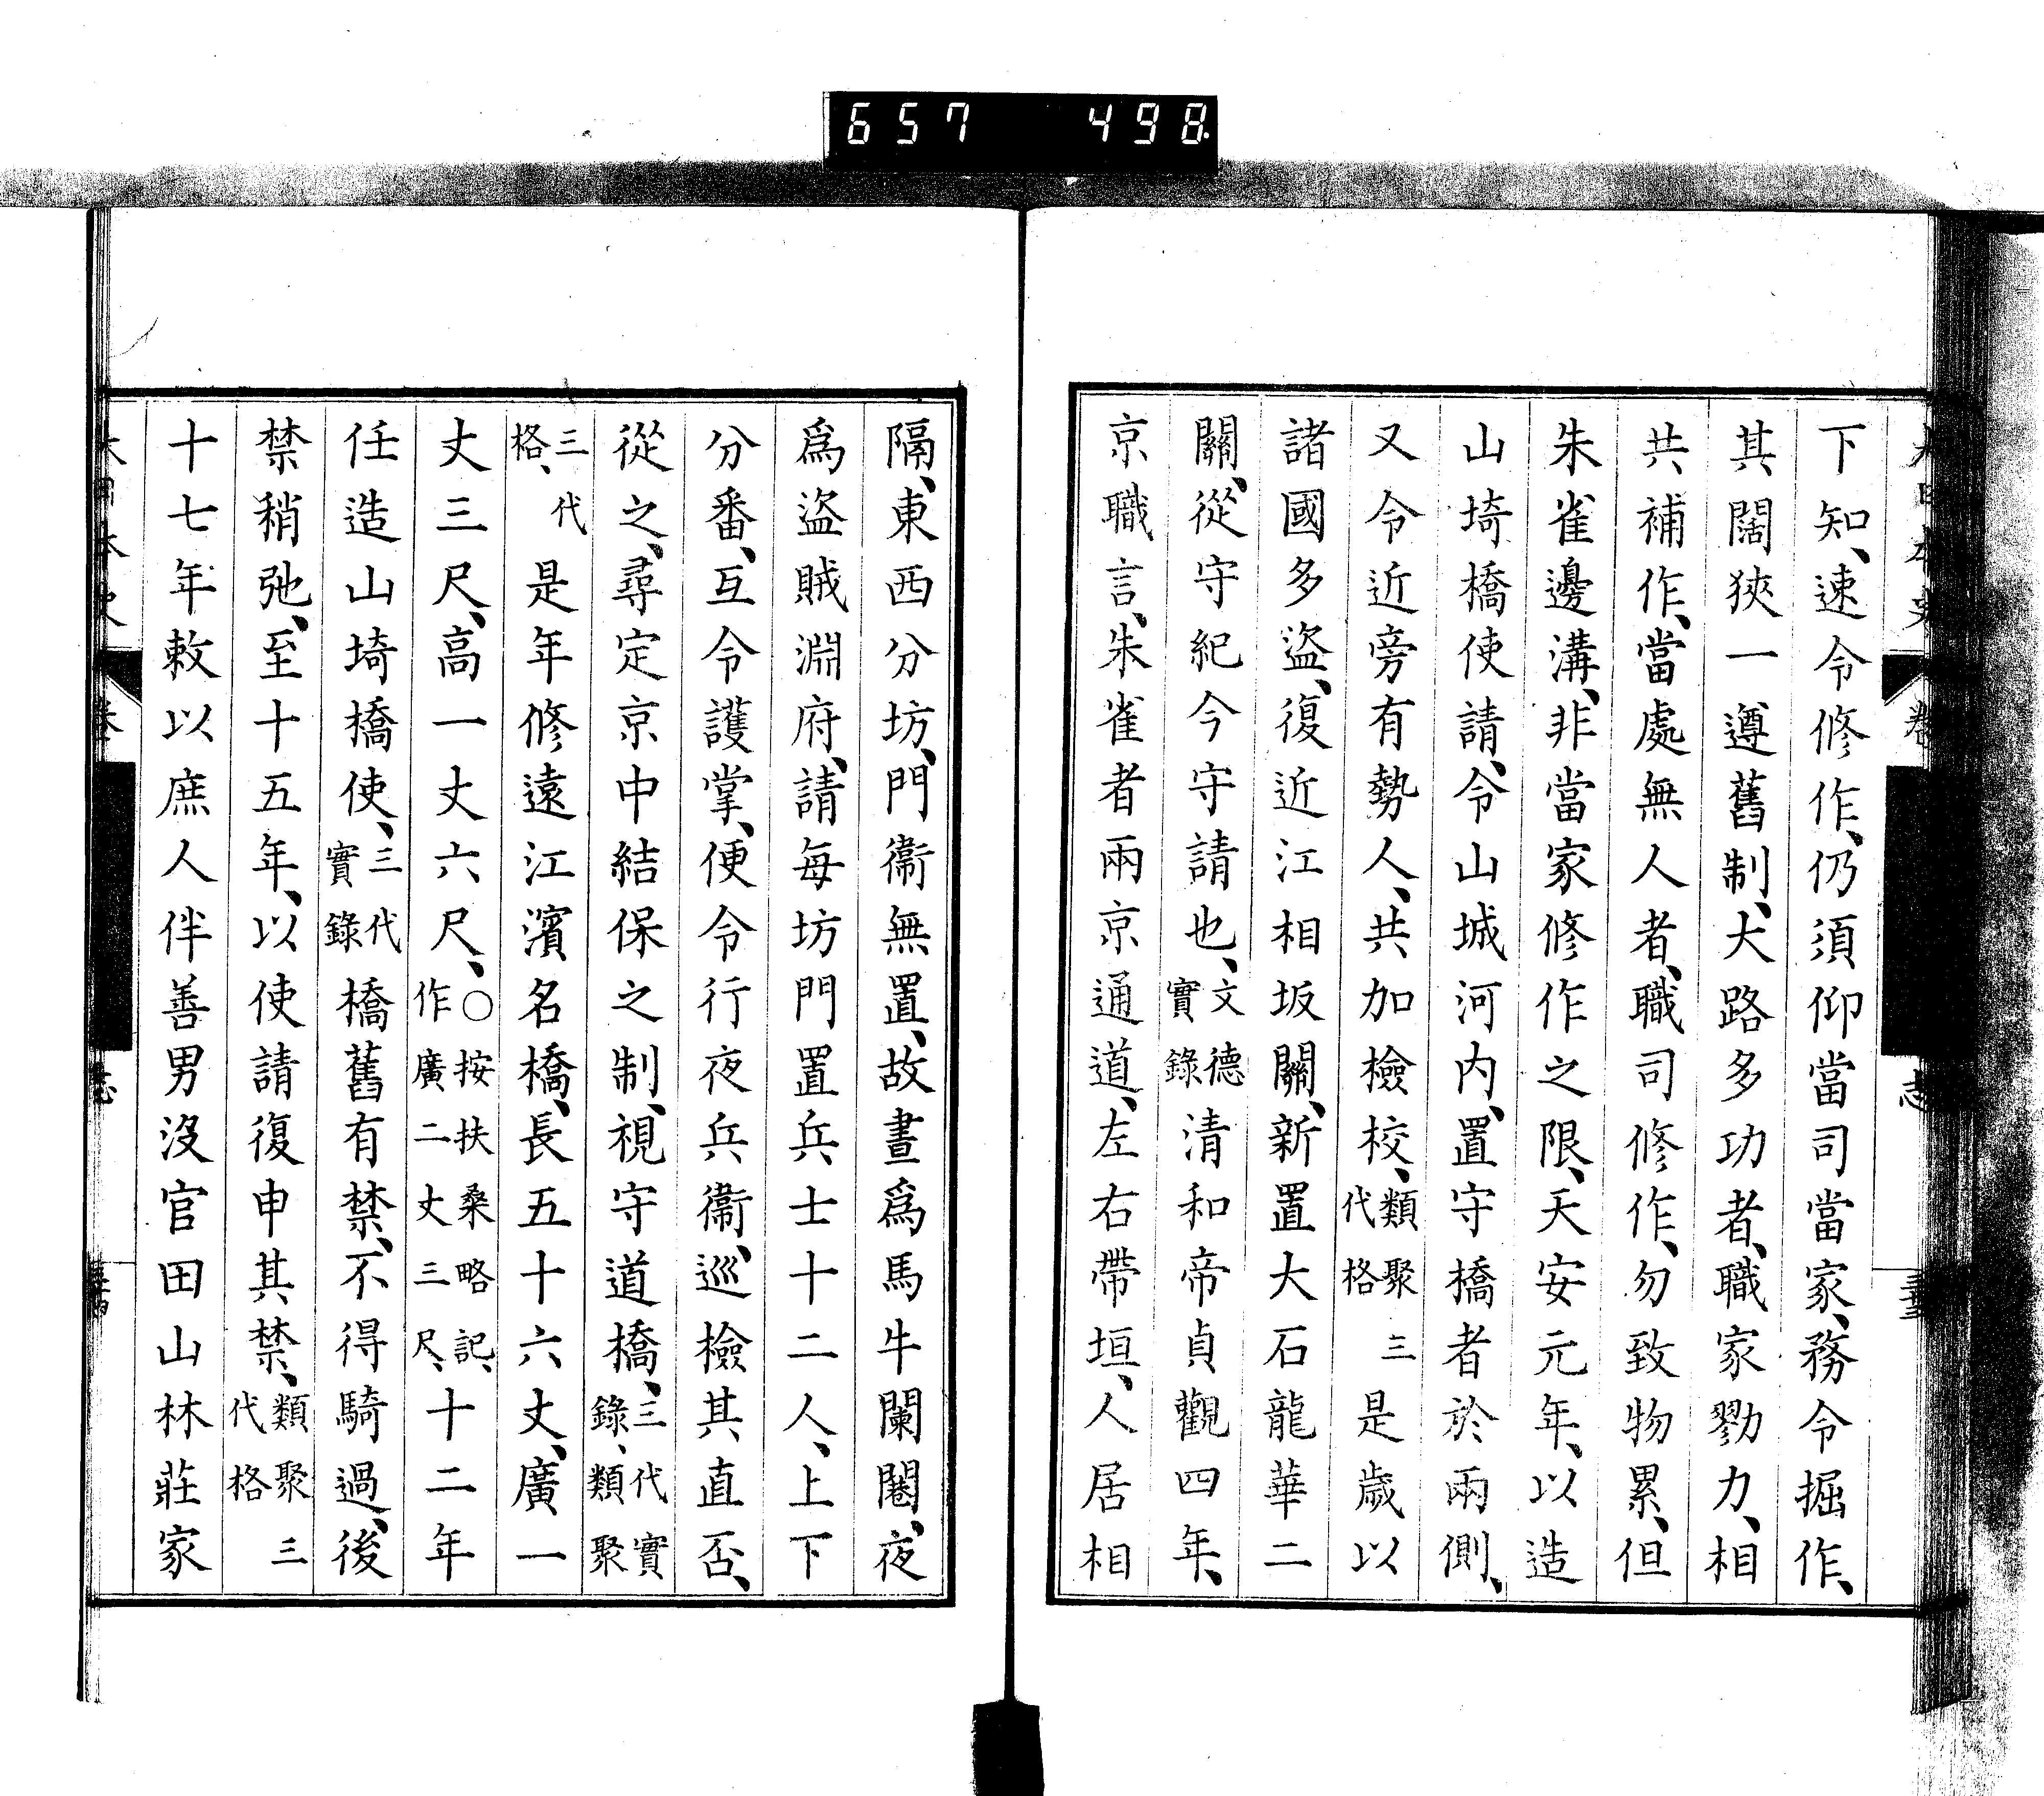 657 498
大日本史 卷 志
下知、速令修作、仍須仰當司當家、務令掘作、
其闊狹一遵舊制、大路多功者、職家勠力、相
共補作、當處無人者、職司修作、勿致物累、但
朱雀邊溝、非當家修作之限、天安元年、以造
山埼橋使請、令山城河内、置守橋者於兩側、
又令近旁有勢人、共加檢校、類聚三代格是歲以
諸國多盜、復近江相坂關、新置大石龍華二
關、從守紀今守請也、文德實錄清和帝貞觀四年、
京職言、朱雀者兩京通道、左右帶垣、人居相
隔、東西分坊、門衞無置、故晝爲馬牛闌闂、夜
爲盜賊淵府、請每坊門置兵士十二人、上下
分番、互令護掌、便令行夜兵衞、巡檢其直否、
從之、尋定京中結保之制、視守道橋、三代實錄、類聚
三代格、是年修遠江濱名橋、長五十六丈、廣一
丈三尺、高一丈六尺、○按扶桑略記、作廣二丈三尺、十二年
任造山埼橋使、三代實錄橋舊有禁、不得騎過、後
禁稍弛、至十五年、以使請復申其禁、類聚三代格
十七年敕以庶人伴善男沒官田山林莊家
大日本史 卷 志